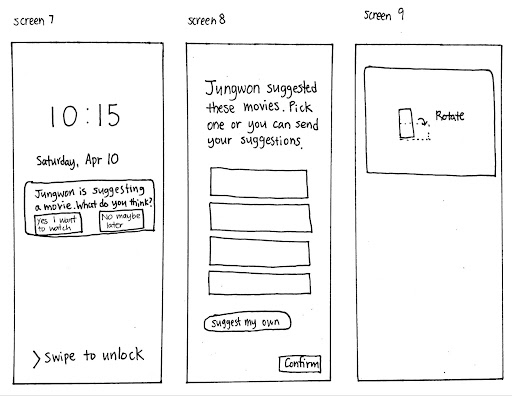 screen 7
10:15
Saturday, Apr 10
Jungwon is suggesting
a movie. What do you think?
Yes I want
to watch
No maybe
later
> Swipe to unlock
screen 8
Jungwon suggested
these movies. Pick
one or you can send
your suggestions.
suggest my own
Confirm
screen 9
Rotate